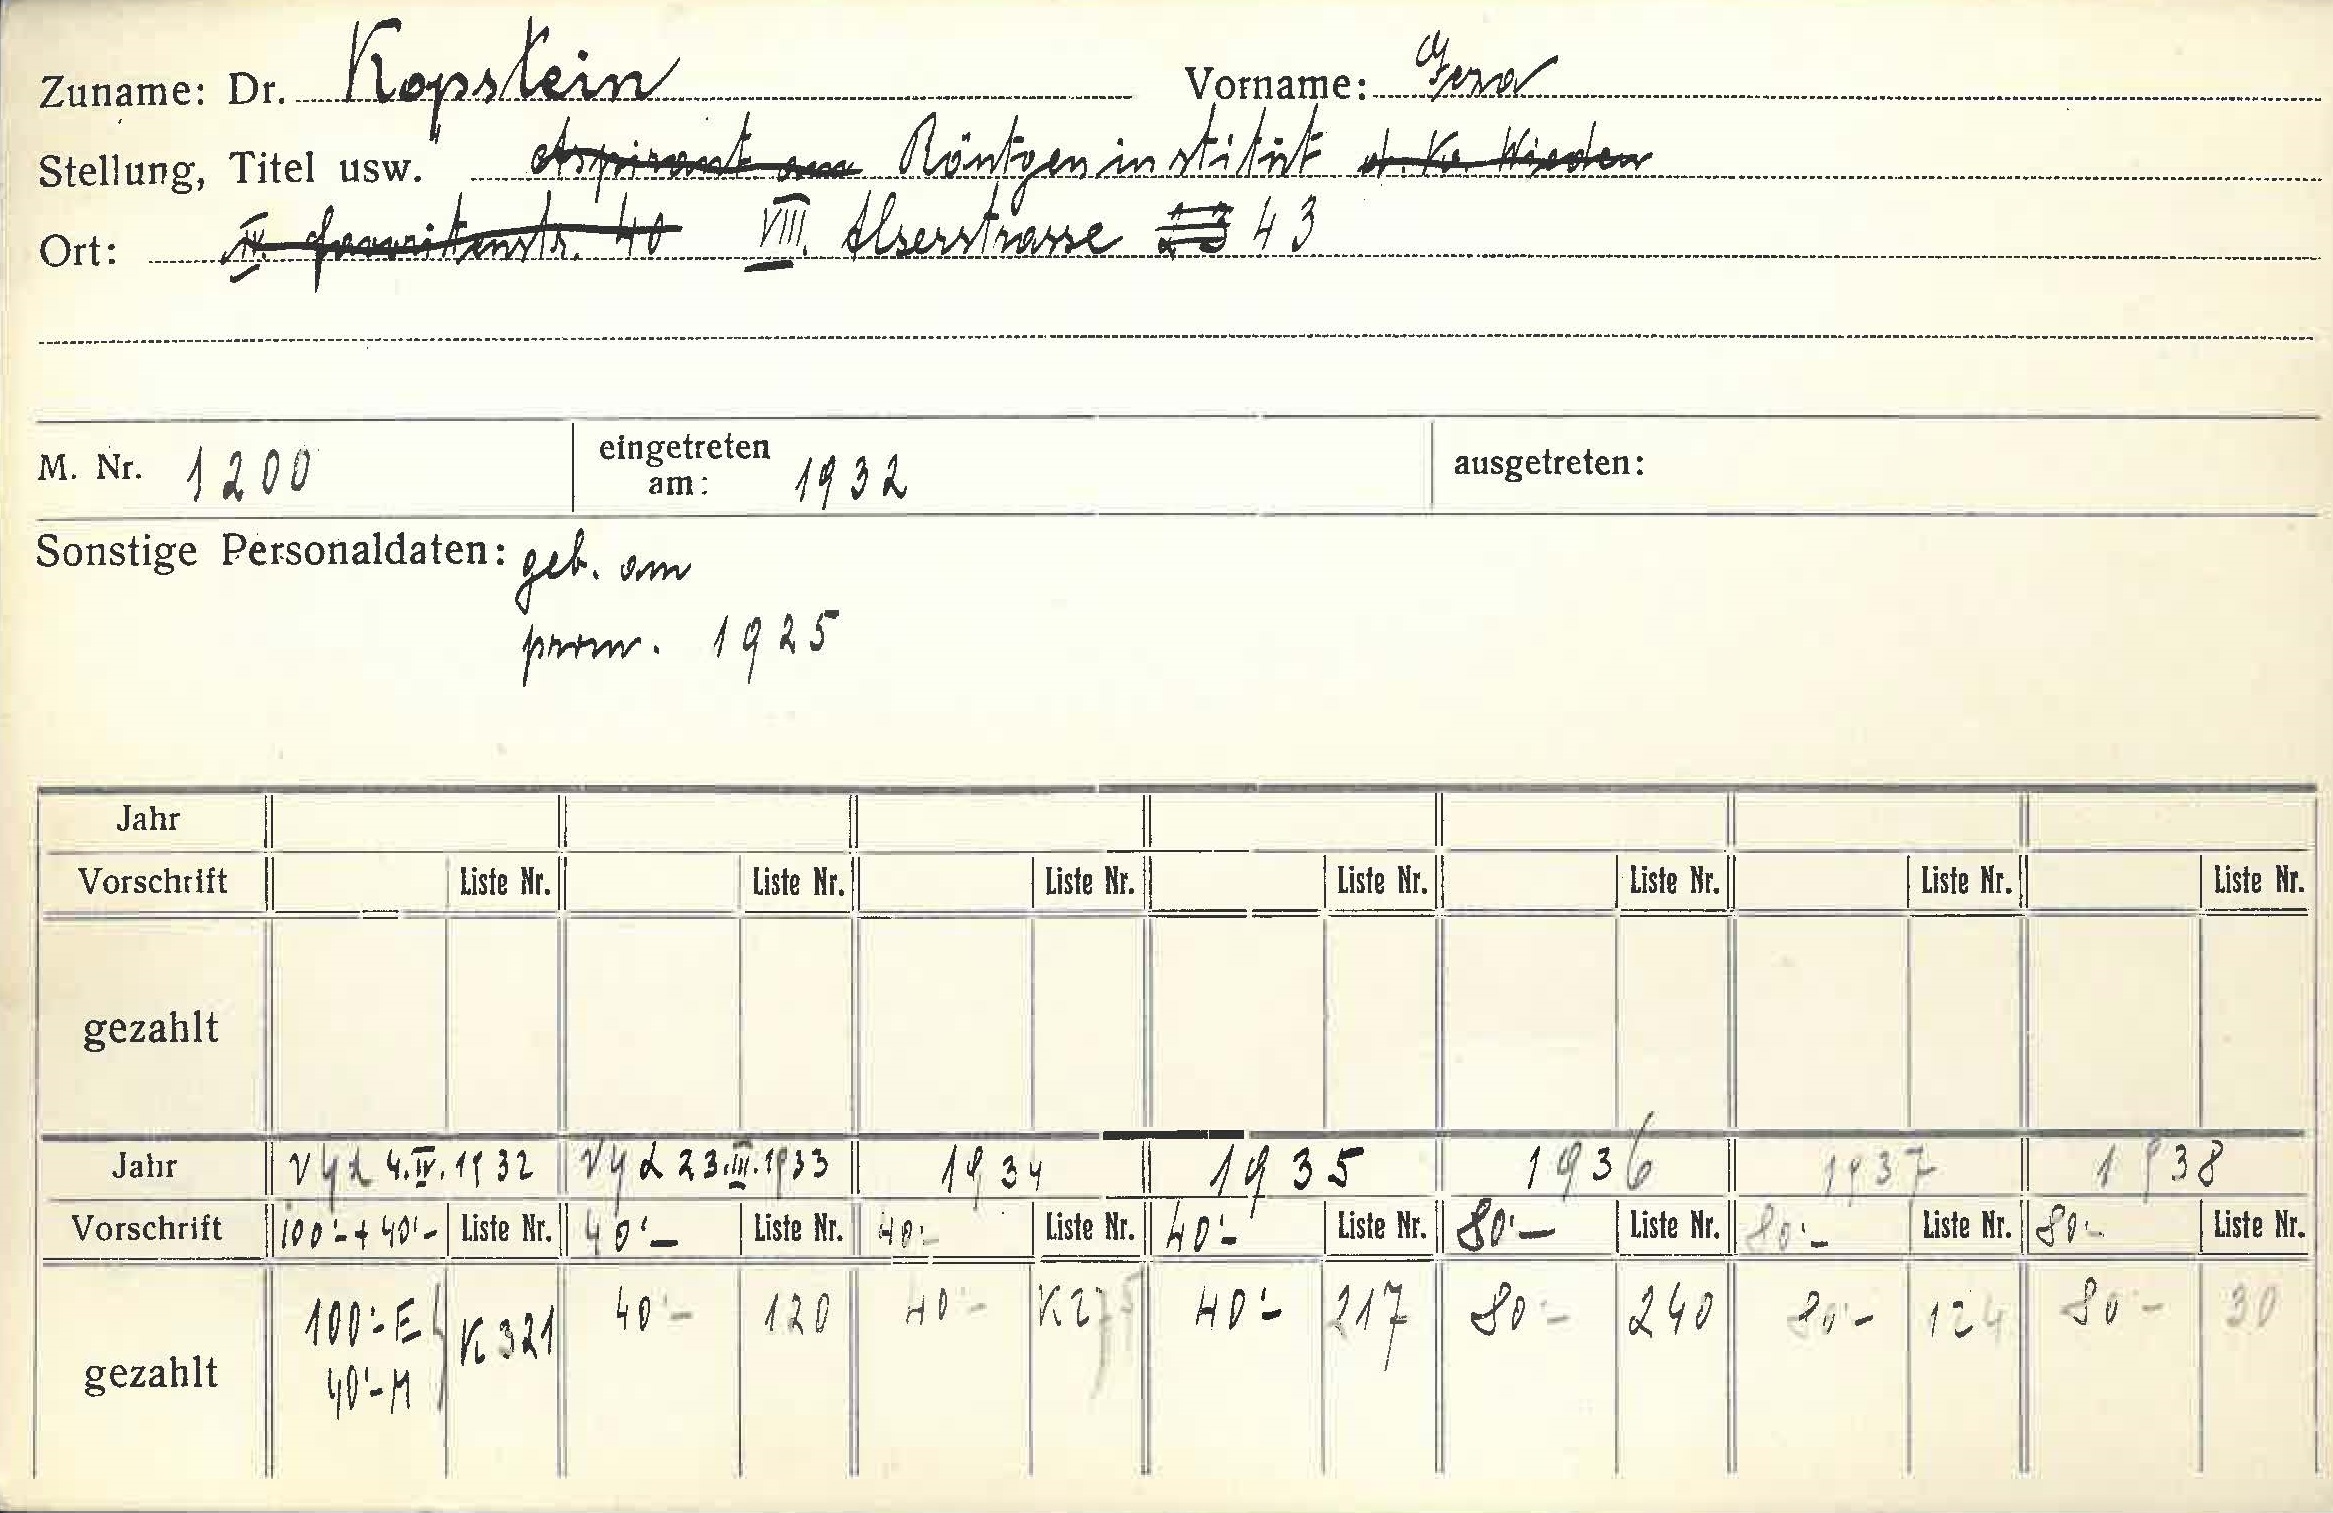 Zuname: Dr. Kopstein Vorname: Geza
Stellung, Titel usw. Aspirant am Röntgeninstitut d. Kr. Wieden
Ort: IV. Favoritenstr. 40 VIII. Alserstrasse 43
M. Nr. 1200 eingetreten am: 1932 ausgetreten:
Sonstige Personaldaten: geb. am
prom. 1925
Jahr
Vorschrift Liste Nr. Liste Nr. Liste Nr. Liste Nr. Liste Nr. Liste Nr. Liste Nr.
gezahlt
Jahr 4.IV.1932 23.III.1933 1934 1935 1936 1937 1938
Vorschrift 100'- + 40'- Liste Nr. 40'- Liste Nr. 40'- Liste Nr. 40'- Liste Nr. 80'- Liste Nr. 80'- Liste Nr. 80'- Liste Nr.
100'- E K 321 40'- 120 40'- K 275 40'- 217 80'- 240 80'- 124 80'- 30
gezahlt 40'- M